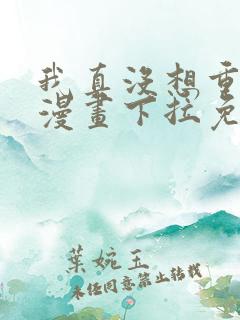 我真没想重
漫畫下拉免
葉婉玉
未经同意禁止转载